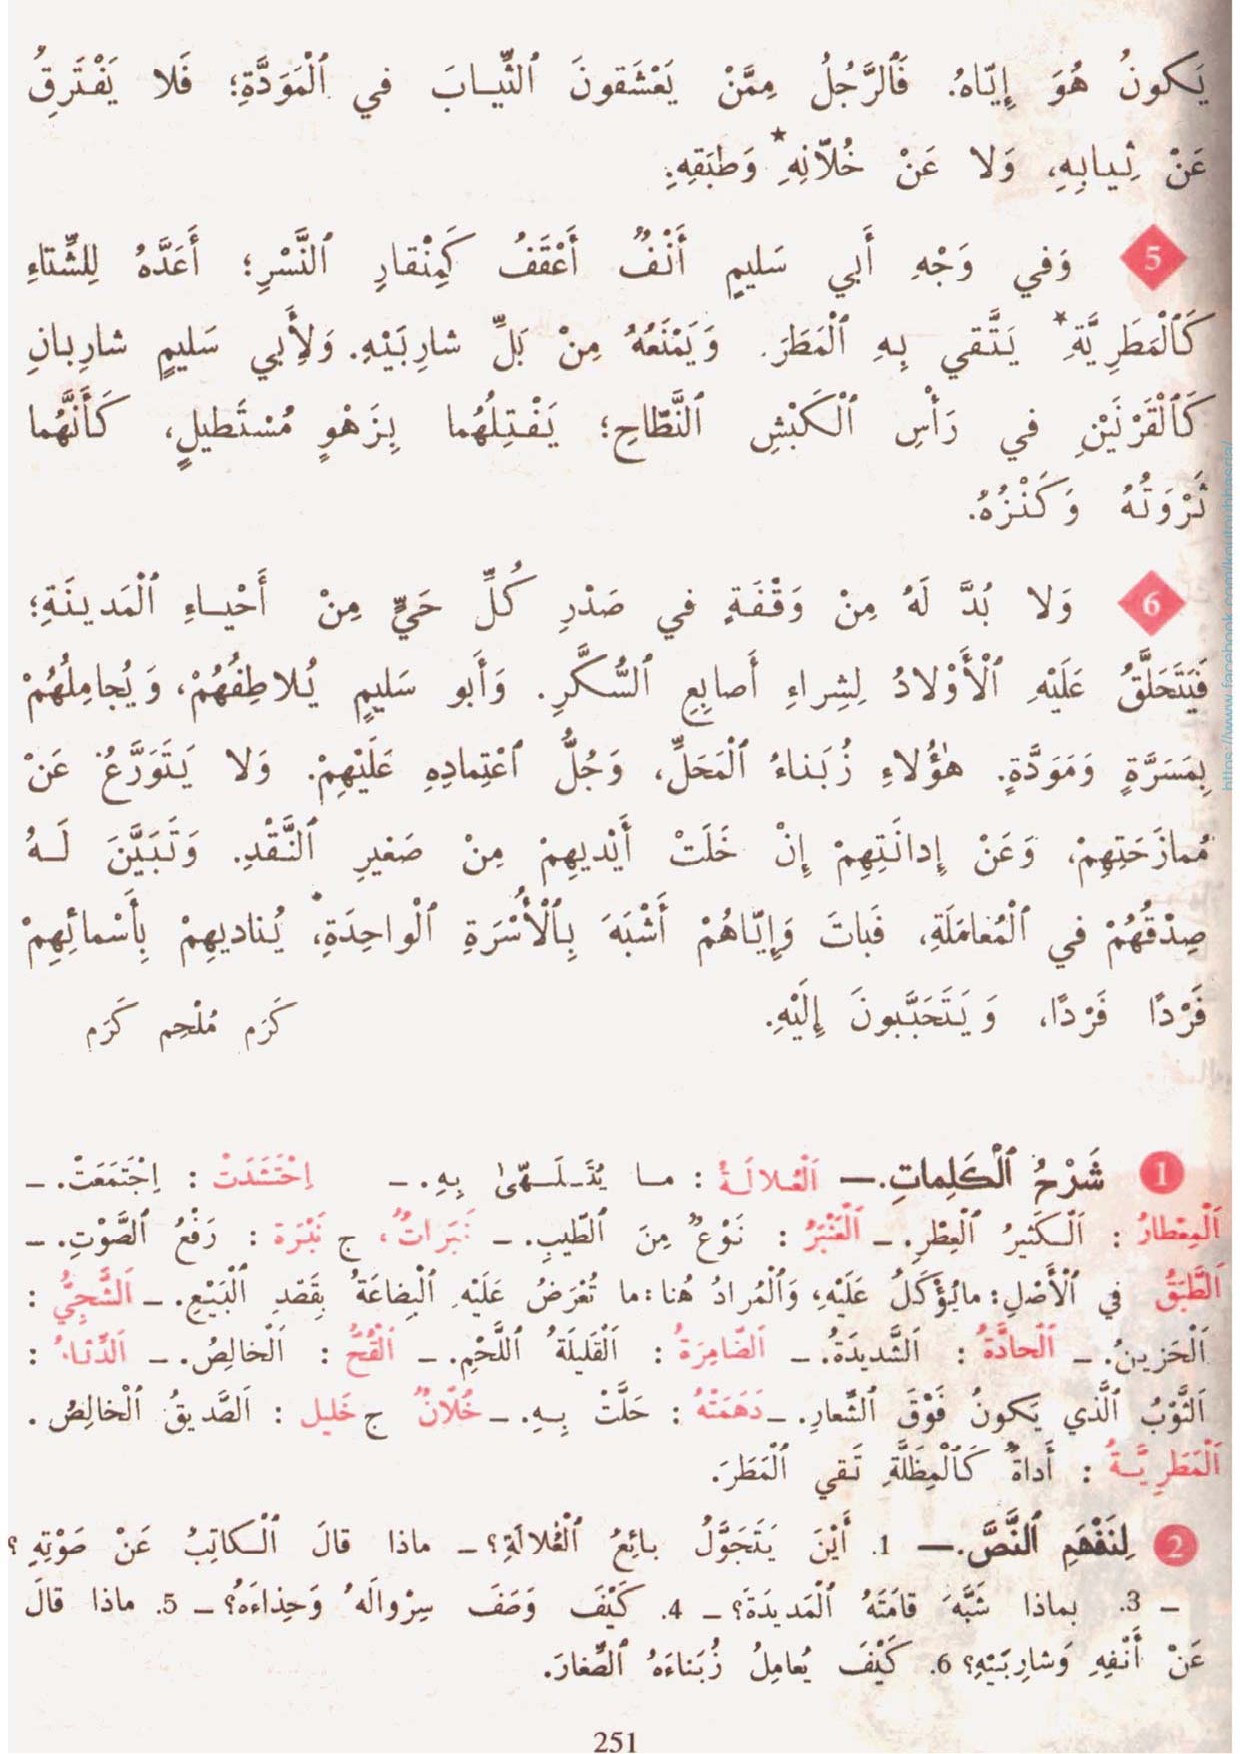 يَكونُ هُوَ إِيّاهُ. فَٱلرَّجُلُ مِمَّنْ يَعْشَقونَ ٱلثِّيابَ في ٱلْمَوَدَّةِ؛ فَلا يَفْتَرِقُ
عَنْ ثِيابِهِ، وَلا عَنْ خُلّانِهِ* وَطَبَقِهِ.
5 وَفي وَجْهِ أَبي سَليمٍ أَنْفٌ أَعْقَفُ كَمِنْقارِ ٱلنَّسْرِ؛ أَعَدَّهُ لِلشِّتاءِ
كَٱلْمَطَرِيَّةِ* يَتَّقي بِهِ ٱلْمَطَرَ. وَيَمْنَعُهُ مِنْ بَلِّ شارِبَيْهِ. وَلِأَبي سَليمٍ شارِبانِ
كَٱلْقَرْنَيْنِ في رَأْسِ ٱلْكَبْشِ ٱلنَّطّاحِ؛ يَفْتِلُهُما بِزَهْوٍ مُسْتَطيلٍ، كَأَنَّهُما
ثَرْوَتُهُ وَكَنْزُهُ.
6 وَلا بُدَّ لَهُ مِنْ وَقْفَةٍ في صَدْرِ كُلِّ حَيٍّ مِنْ أَحْياءِ ٱلْمَدينَةِ؛
فَيَتَحَلَّقُ عَلَيْهِ ٱلْأَوْلادُ لِشِراءِ أَصابِعِ ٱلسُّكَّرِ. وَأَبو سَليمٍ يُلاطِفُهُمْ، وَيُجامِلُهُمْ
بِمَسَرَّةٍ وَمَوَدَّةٍ. هٰؤُلاءِ زُبَناءُ ٱلْمَحَلِّ، وَجُلُّ ٱعْتِمادِهِ عَلَيْهِمْ. وَلا يَتَوَرَّعُ عَنْ
مُمازَحَتِهِمْ، وَعَنْ إِدانَتِهِمْ إِنْ خَلَتْ أَيْديهِمْ مِنْ صَغيرِ ٱلنَّقْدِ. وَتَبَيَّنَ لَهُ
صِدْقُهُمْ في ٱلْمُعامَلَةِ، فَباتَ وَإِيّاهُمْ أَشْبَهَ بِٱلْأُسْرَةِ ٱلْواحِدَةِ، يُناديهِمْ بِأَسْمائِهِمْ
فَرْدًا فَرْدًا، وَيَتَحَبَّبونَ إِلَيْهِ.
كَرَم مُلْحِم كَرَم
1 شَرْحُ ٱلْكَلِماتِ.— اَلْعُلالَةُ : ما يُتَلَهّىٰ بِهِ. – اِحْتَشَدَتْ : اِجْتَمَعَتْ. –
اَلْمِعْطارُ : اَلْكَثيرُ ٱلْعِطْرِ. – اَلْعَنْبَرُ : نَوْعٌ مِنَ ٱلطّيبِ. – نَبَراتٌ، ج نَبْرَة : رَفْعُ ٱلصَّوْتِ. –
اَلطَّبَقُ في ٱلْأَصْلِ: مايُؤْكَلُ عَلَيْهِ، وَٱلْمُرادُ هُنا: ما تُعْرَضُ عَلَيْهِ ٱلْبِضاعَةُ بِقَصْدِ ٱلْبَيْعِ. – اَلشَّجِيُّ :
اَلْحَزينُ. – اَلْحادَّةُ : اَلشَّديدَةُ. – اَلضّامِرَةُ : اَلْقَليلَةُ ٱللَّحْمِ. – اَلْقُحُّ : اَلْخالِصُ. – اَلدِّثارُ :
اَلثَّوْبُ ٱلَّذي يَكونُ فَوْقَ ٱلشِّعارِ. – دَهَمَتْهُ : حَلَّتْ بِهِ. – خُلّانٌ ج خَليل : اَلصَّديقُ ٱلْخالِصُ.
اَلْمَطَرِيَّةُ : أَداةٌ كَٱلْمِظَلَّةِ تَقي ٱلْمَطَرَ.
2 لِنَفْهَمِ ٱلنَّصَّ.— 1. أَيْنَ يَتَجَوَّلُ بائِعُ ٱلْعُلالَةِ؟ – ماذا قالَ ٱلْكاتِبُ عَنْ صَوْتِهِ؟
– 3. بماذا شَبَّهَ قامَتَهُ ٱلْمَديدَةَ؟ – 4. كَيْفَ وَصَفَ سِرْوالَهُ وَحِذاءَهُ؟ – 5. ماذا قالَ
عَنْ أَنْفِهِ وَشارِبَيْهِ؟ 6. كَيْفَ يُعامِلُ زُبَناءَهُ ٱلصِّغارَ.
251
https://www.facebook.com/koutoubhasria/